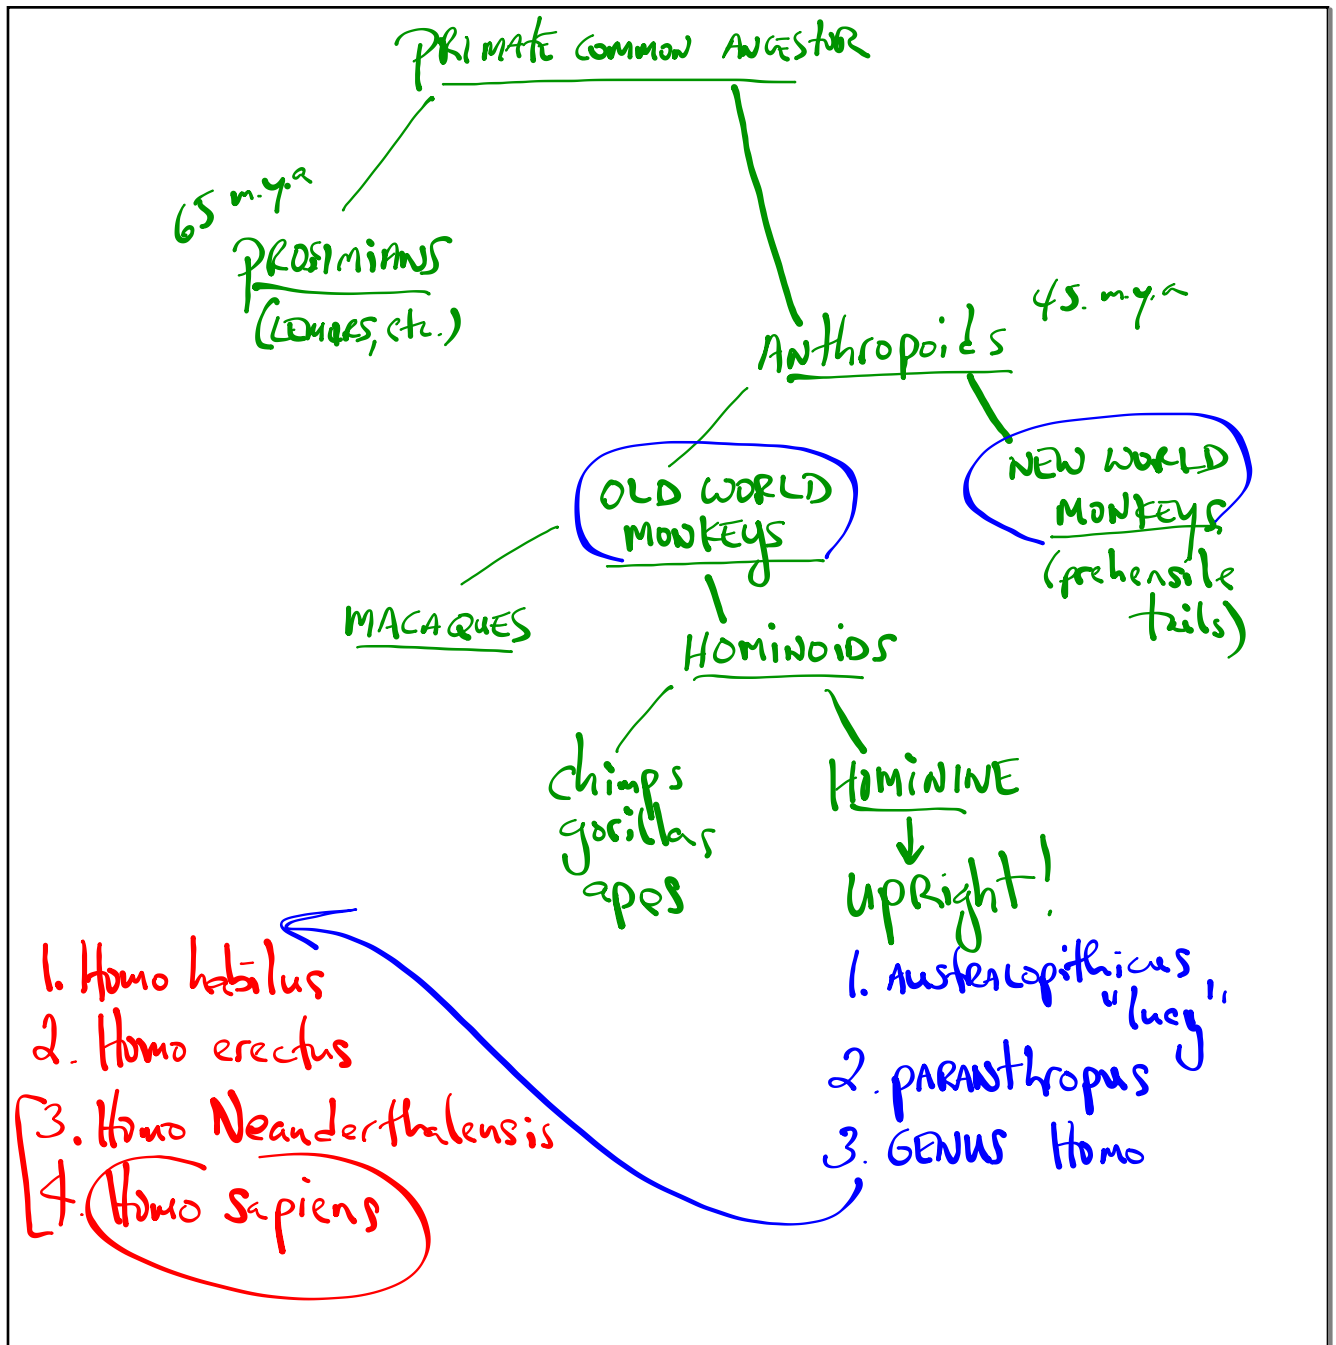 PRIMATE COMMON ANCESTOR
65 m.y.a
PROSIMIANS
(LEMURS, etc.)
45. m.y.a
ANthropoids
OLD WORLD
MONKEYS
NEW WORLD
MONKEYS
(prehensile
tails)
MACAQUES
HOMINOIDS
chimps
gorillas
apes
HOMINiNE
UPRight!
1. AUSTRALOpithicus
"lucy"
2. PARANthropus
3. GENUS Homo
1. Homo habilus
2. Homo erectus
3. Homo Neanderthalensis
4. Homo sapiens